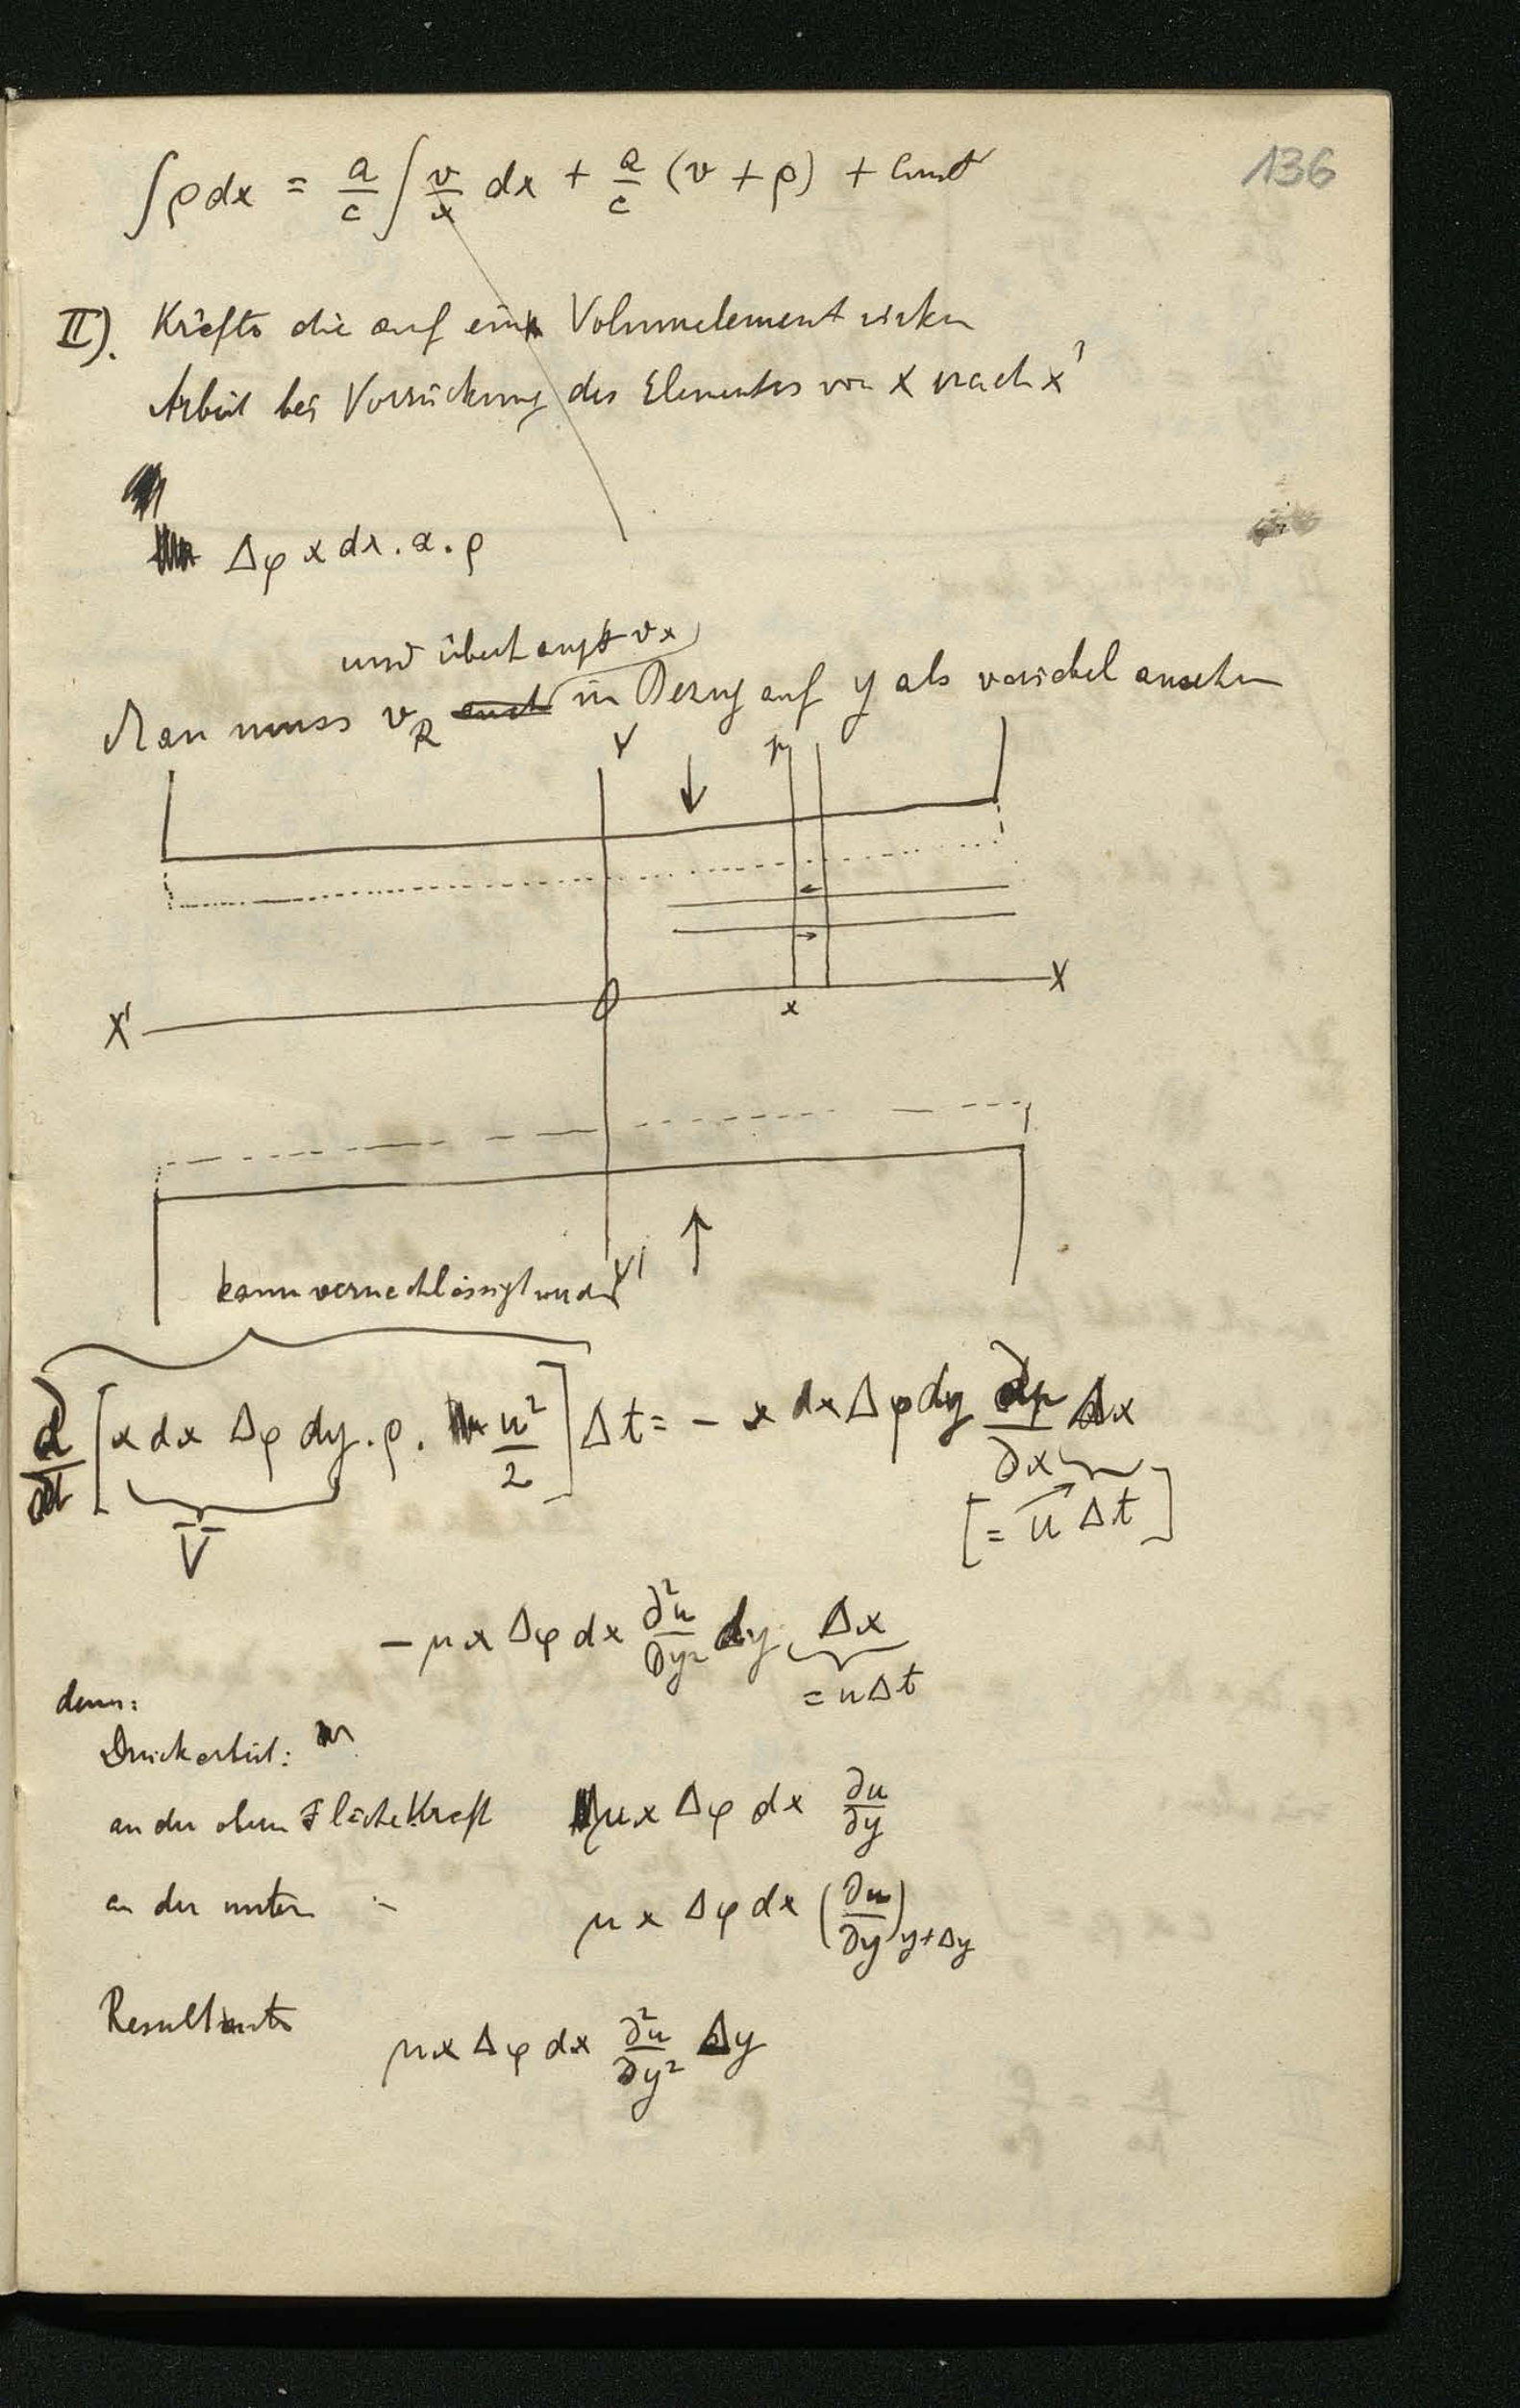 136
∫ρdx = a/c ∫ v/x dx + a/c (v + ρ) + Const
II). Kräfte die auf ein Volumelement wirken
Arbeit bei Verrückung des Elementes von x nach x'
Δφ x dx . a . ρ
und überhaupt vx
Man muss v_R auch in Bezug auf y als variabel ansehen
Y
p
X
X'
O
x
Y'
kann vernachlässigt werden
∂/∂t [x dx Δφ dy . ρ . u²/2] Δt = - x dx Δφ dy ∂p/∂x Δx
V
[= u Δt]
- μ x Δφ dx ∂²u/∂y² dy Δx
= u Δt
denn:
Druckarbeit:
an der obern Fläche Kraft μ x Δφ dx ∂u/∂y
an der untern " μ x Δφ dx (∂u/∂y)y+Δy
Resultante μ x Δφ dx ∂²u/∂y² Δy